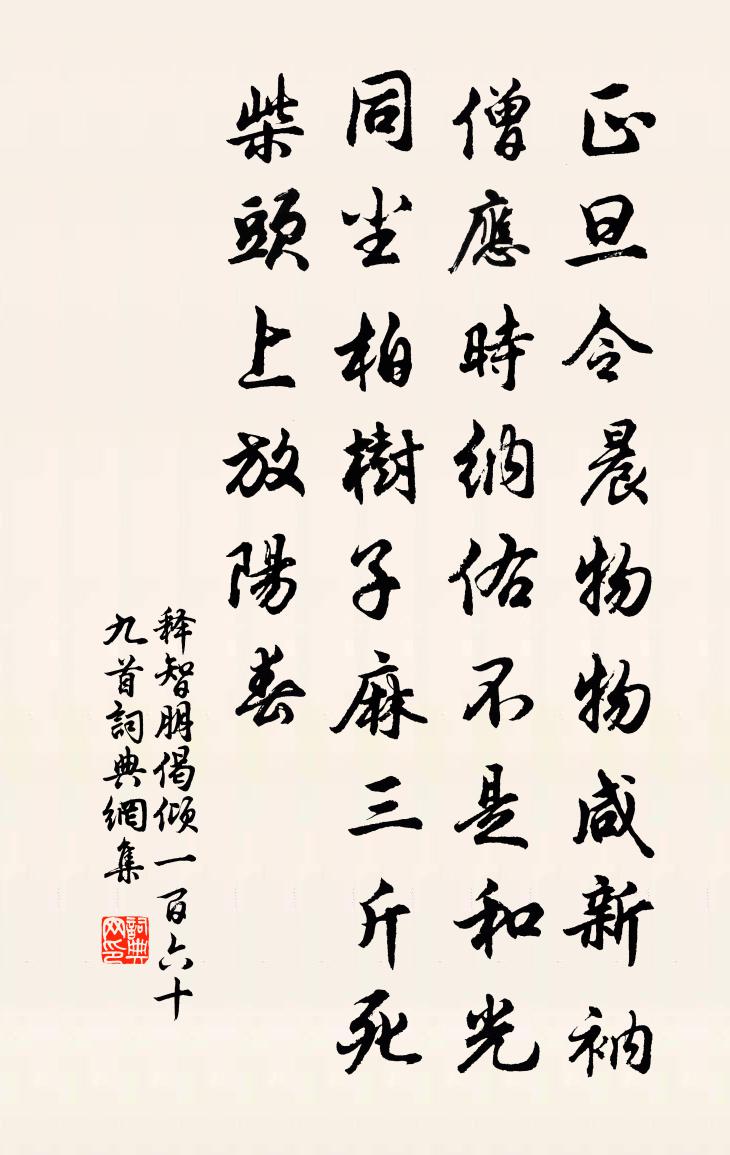 正旦令晨物物咸新衲
僧應時納佑不是和光
同尘柏樹子麻三斤死
柴頭上放陽春
释智朋偈倾一百六十
九首詞典網集
詞典网印